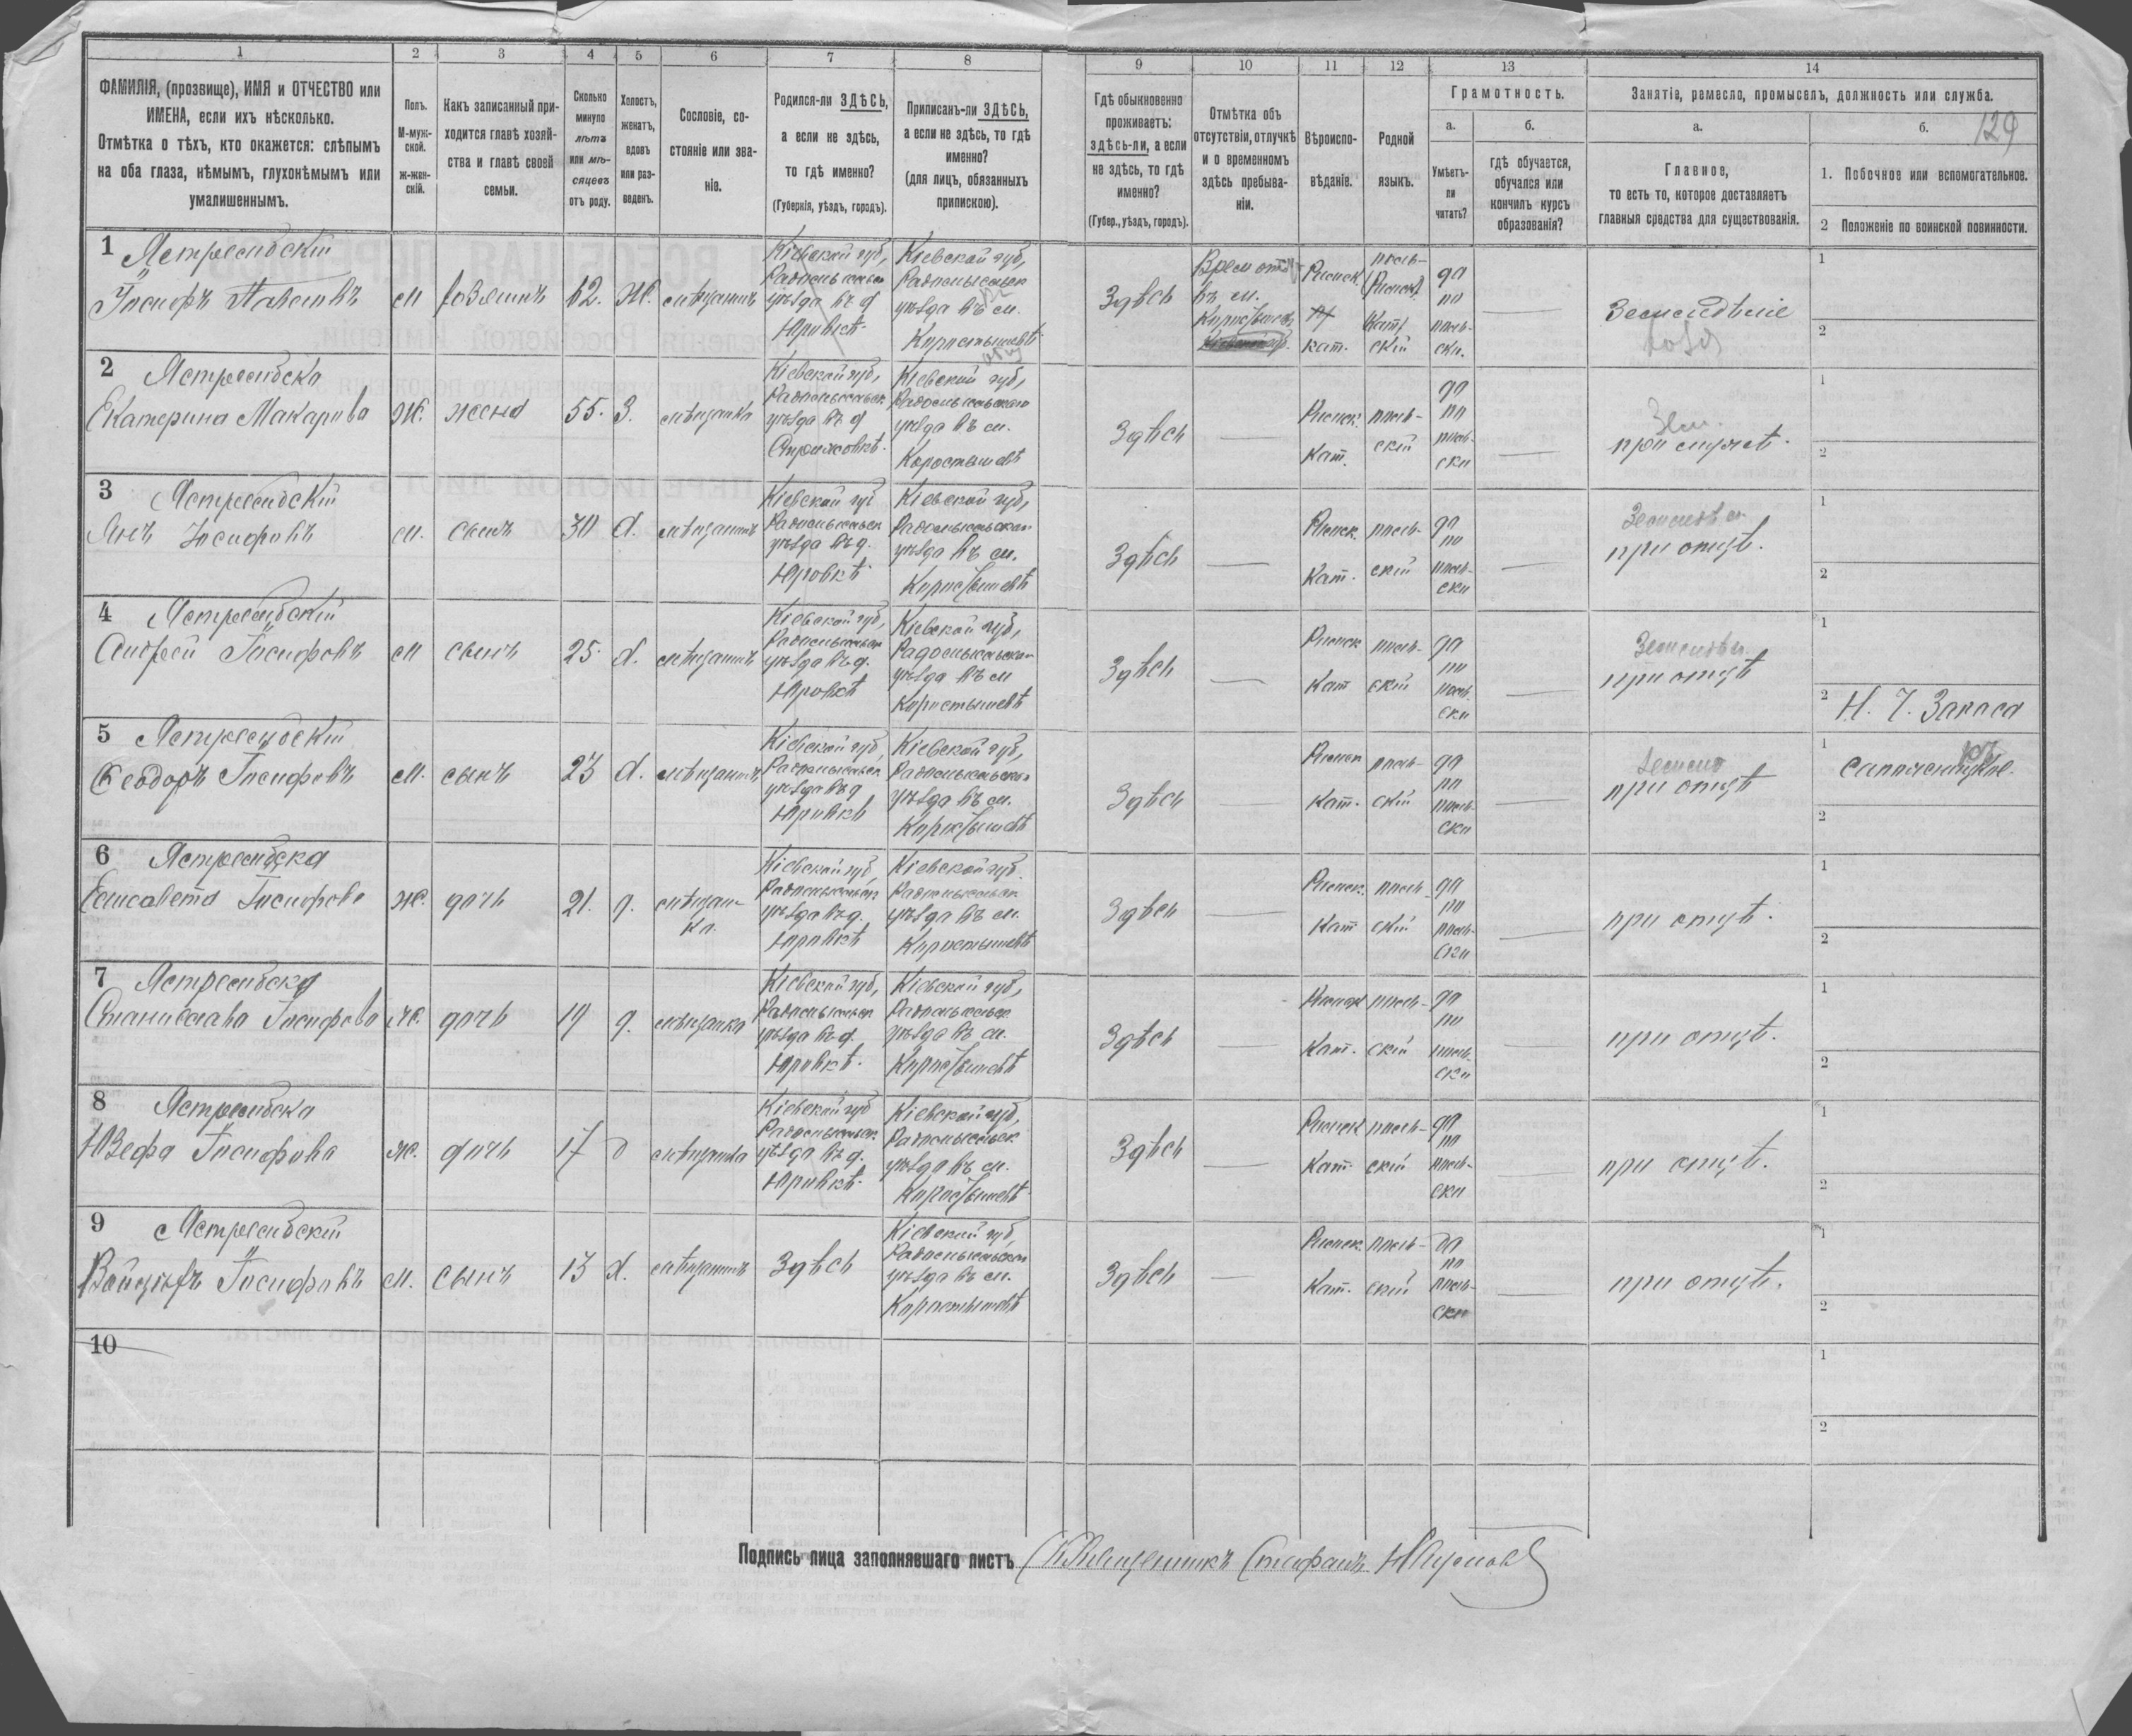 1 2 3 4 5 6 7 8 9 10 11 12 13 14
129
ФАМИЛІЯ, (прозвище), ИМЯ и ОТЧЕСТВО или
ИМЕНА, если ихъ нѣсколько.
Отмѣтка о тѣхъ, кто окажется: слѣпымъ
на оба глаза, нѣмымъ, глухонѣмымъ или
умалишеннымъ.
Полъ.
М-муж-
ской.
ж-жен-
скій.
Какъ записанный при-
ходится главѣ хозяй-
ства и главѣ своей
семьи.
Сколько
минуло
лѣтъ
или мѣ-
сяцевъ
отъ роду.
Холостъ,
женатъ,
вдовъ
или раз-
веденъ.
Сословіе, со-
стояніе или зва-
ніе.
Родился-ли ЗДѢСЬ,
а если не здѣсь,
то гдѣ именно?
(Губернія, уѣздъ, городъ).
Приписанъ-ли ЗДѢСЬ,
а если не здѣсь, то гдѣ
именно?
(для лицъ, обязанныхъ
припискою).
Гдѣ обыкновенно
проживаетъ:
здѣсь-ли, а если
не здѣсь, то гдѣ
именно?
(Губер., уѣздъ, городъ).
Отмѣтка объ
отсутствіи, отлучкѣ
и о временномъ
здѣсь пребыва-
ніи.
Вѣроиспо-
вѣданіе.
Родной
языкъ.
Грамотность.
а.
Умѣетъ-
ли
читать?
б.
гдѣ обучается,
обучался или
кончилъ курсъ
образованія?
Занятіе, ремесло, промыселъ, должность или служба.
а.
Главное,
то есть то, которое доставляетъ
главныя средства для существованія.
б.
1. Побочное или вспомогательное.
2 Положеніе по воинской повинности.
1 Ястрембскій
Іосифъ
м хозяинъ 62. Ж. мѣщанинъ
Кіевской губ,
уѣзда въ д
Юровкѣ
Кіевской губ,
уѣзда въ м.
Коростышевѣ
Здѣсь
въ м.
кат.
да
по
поль-
ски.
Земледѣліе
1
2
2 Ястрембска
Екатерина Макарова
Ж. жена 55. З. мѣщанка
Кіевской губ,
уѣзда въ д
Кіевской губ,
уѣзда въ м.
Коростышевѣ
Здѣсь
Римск.
Кат.
поль-
скій
да
по
поль-
ски
при мужѣ.
1
2
3 Ястрембскій
Янъ Іосифовъ
м. сынъ 30 х. мѣщанинъ
Кіевской губ
уѣзда въ д.
Юровкѣ
Кіевской губ,
уѣзда въ м.
Коростышевѣ
Здѣсь
Римск.
Кат.
поль-
скій
да
по
поль-
ски
при отцѣ.
1
2
4 Ястрембскій
Андрей Іосифовъ
м сынъ 25. х. мѣщанинъ
Кіевской губ,
уѣзда въ д.
Юровкѣ
Кіевской губ,
уѣзда въ м
Коростышевѣ
Здѣсь
Римск
Кат
поль-
скій
да
по
поль-
ски
при отцѣ
1
2 Н. Ч. Запаса
5 Ястрембскій
Ѳеодоръ Іосифовъ
м. сынъ 23 х. мѣщанинъ
Кіевской губ,
уѣзда въ д
Юровкѣ
Кіевской губ,
уѣзда въ м.
Коростышевѣ
Здѣсь
Римск
Кат.
поль-
скій
да
по
поль-
ски
при отцѣ
1
2
6 Ястрембска
Елисавета Іосифова
ж. дочь 21. д. мѣщан-
ка.
Кіевской губ,
уѣзда въ д.
Юровкѣ
Кіевской губ.
уѣзда въ м.
Коростышевѣ
Здѣсь
Римск.
Кат
поль-
скій
да
по
поль-
ски
при отцѣ.
1
2
7 Ястрембска
Станислава Іосифова
ж. дочь 19 д. мѣщанка
Кіевской губ,
уѣзда въ д.
Юровкѣ.
Кіевской губ,
уѣзда въ м.
Коростышевѣ
Здѣсь
Римск
Кат.
поль-
скій
да
по
поль-
ски
при отцѣ.
1
2
8 Ястрембска
Юзефа Іосифова
ж. дочь 17 д мѣщанка
Кіевской губ
уѣзда въ д.
Юровкѣ.
Кіевской губ,
уѣзда въ м.
Коростышевѣ
Здѣсь
Римск
Кат.
поль-
скій
да
по
поль-
ски
при отцѣ.
1
2
9 Ястрембскій
Іосифовъ
м. сынъ 13 х. мѣщанинъ Здѣсь
Кіевской губ,
уѣзда въ м.
Коростышевѣ
Здѣсь
Римск.
Кат.
поль-
скій
да
по
поль-
ски
при отцѣ.
1
2
10
1
2
Подпись лица заполнявшаго листъ Стефанъ